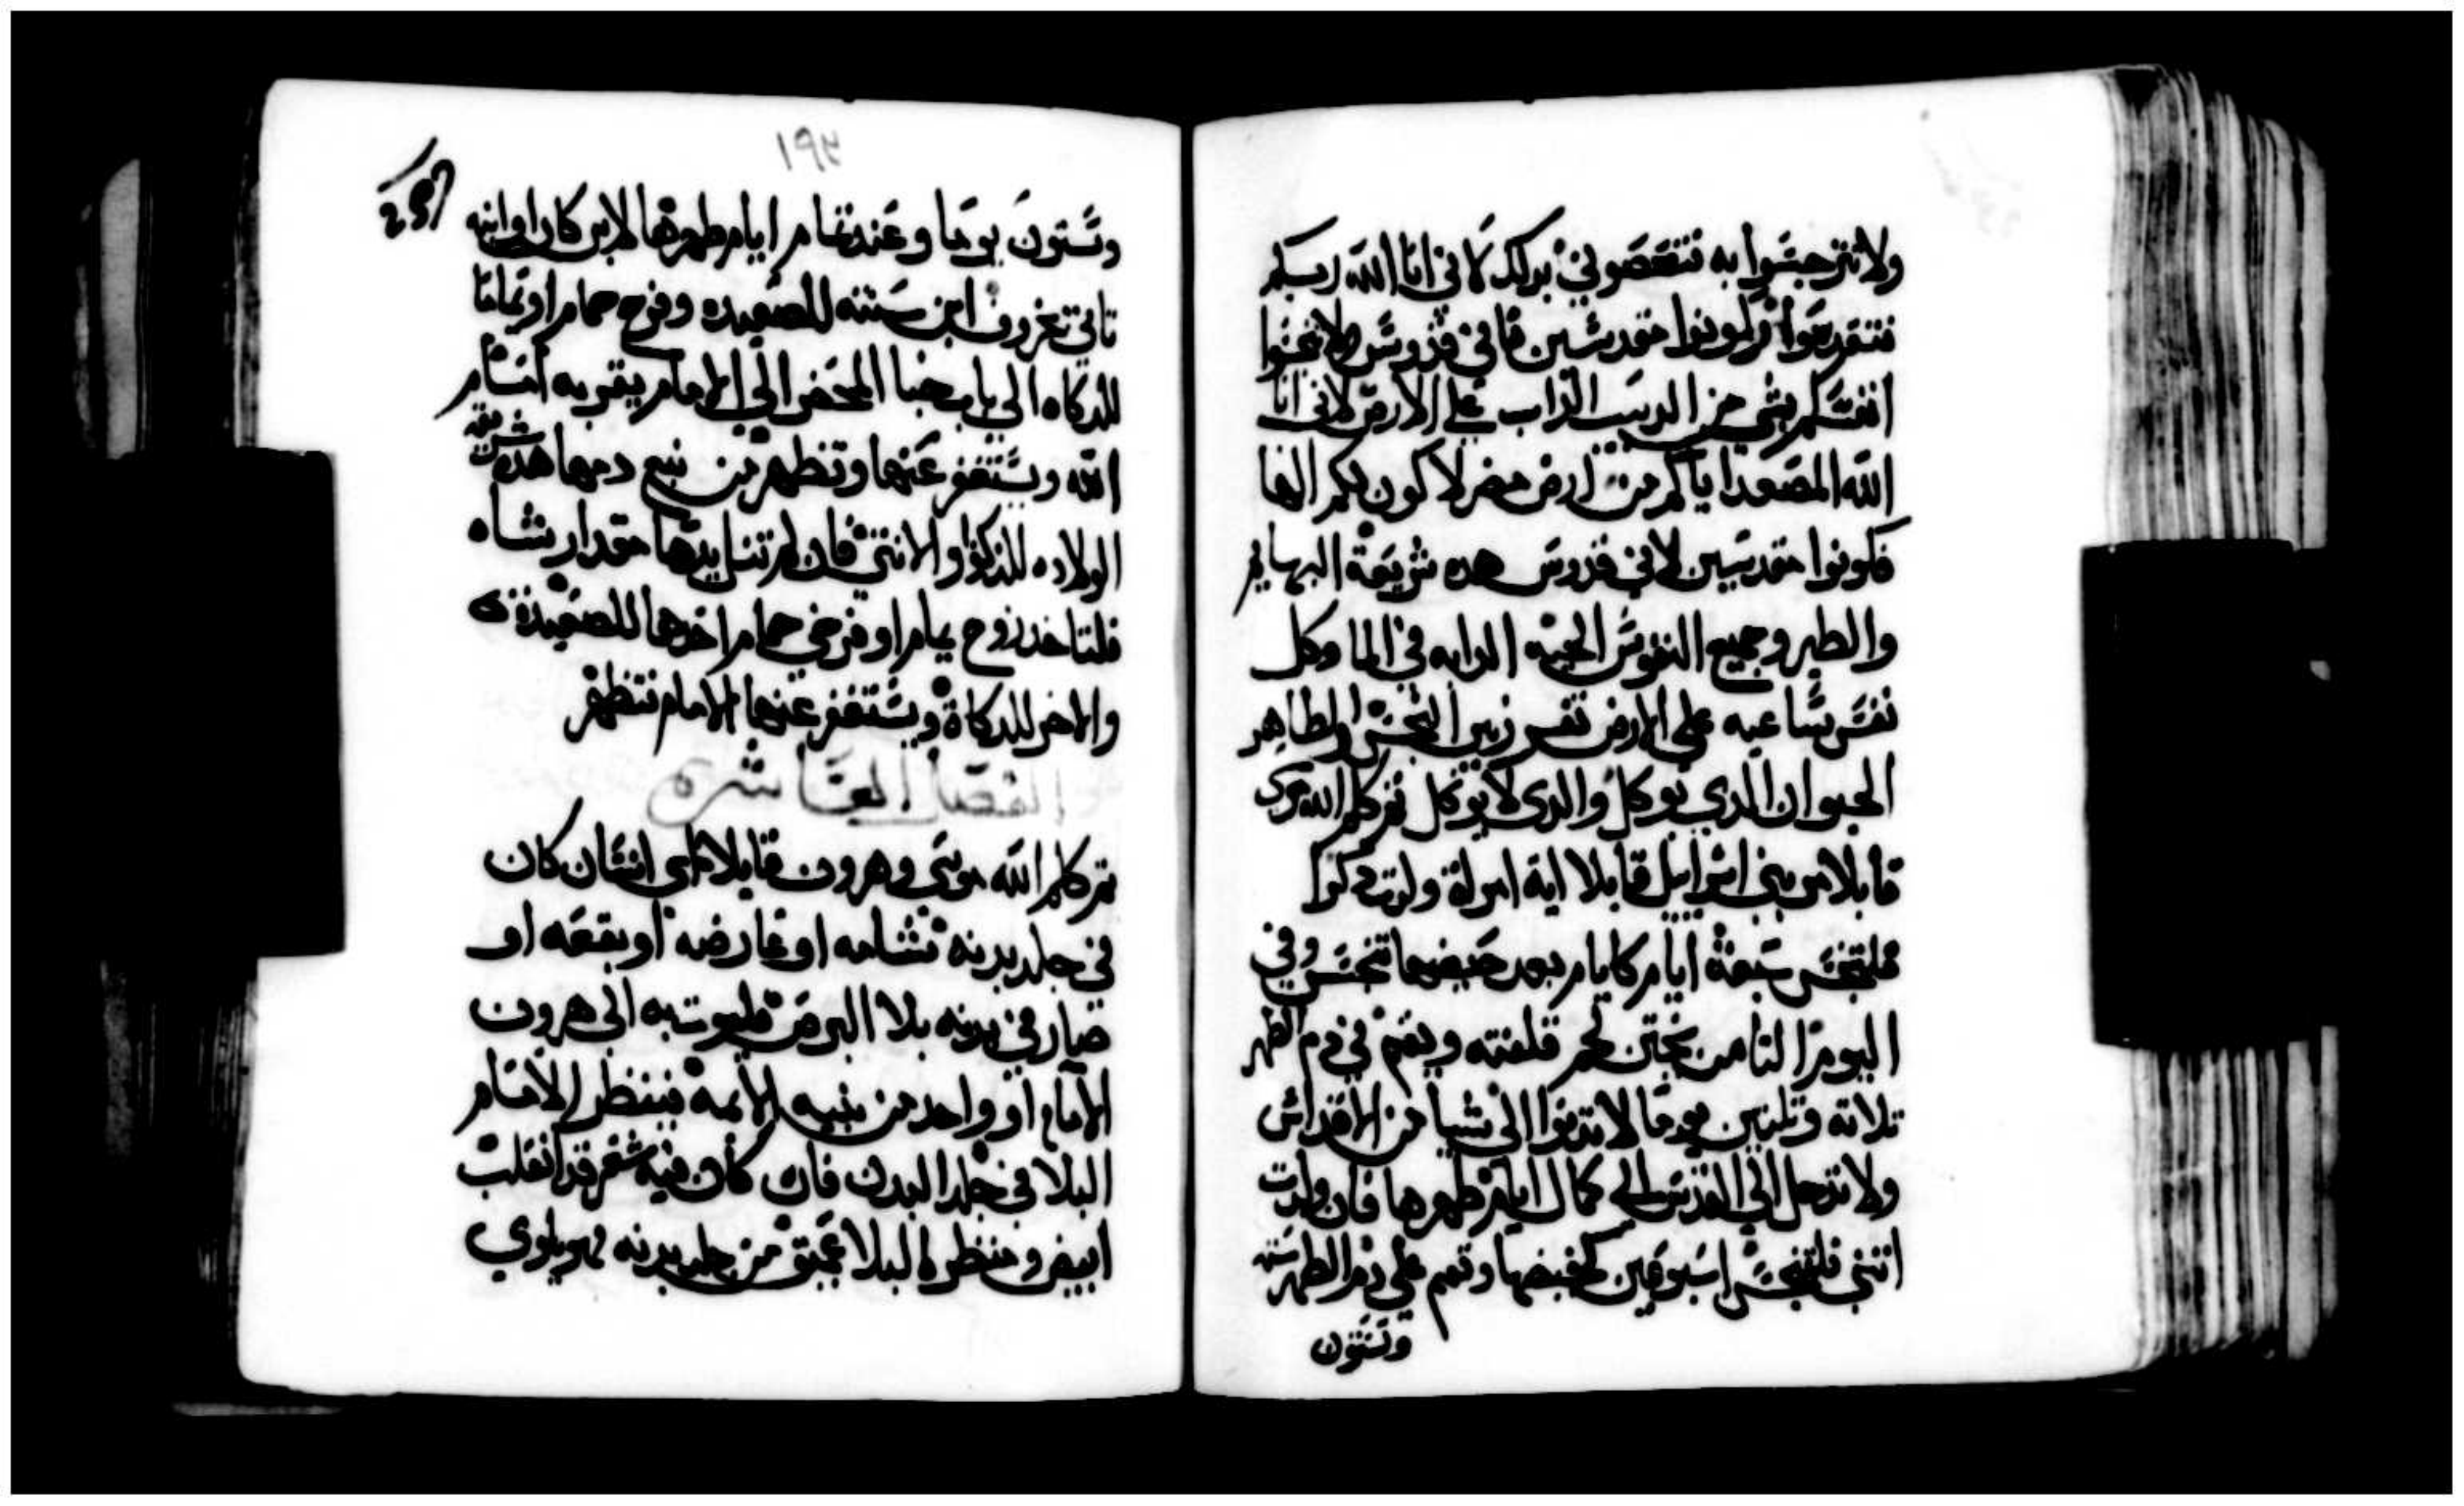 ولا تترجسوا به فتنقصوني بدلك لاني انا الله ربكم
فتقدسوا وكونوا مقدسين فاني قدوس ولا تنجسوا
انفسكم بشي من الدبيب الداب علي الارض لاني انا
الله المصعد اياكم من ارض مصر لاكون لكم الها
فكونوا مقدسين لاني قدوس هده شريعة البهايم
والطير وجميع النفوس الحيه الدابه في الما وكل
نفس ساعيه علي الارض تفسر زبين النجس والطاهر
الحيوان الدي يوكل والدي لا يوكل ثم كلم الله موسى
قايلا مر بني اسراييل قايلا اية امراة ولدت دكرا
فلتنجس سبعة ايام كايام بعد حيضها تنجس وفي
اليوم الثامن يختن لحم قلفته وتقم في دم الطهر
تلاته وتلتين يوما لا تدنوا الى شيا من الاقداس
ولا تدخل الي القدس الى كمال ايام طهرها فان ولدت
انثي فلتنجس اسبوعين كحيضها وتقم علي دم الطهر سته
وستون
١٩٤
وستون يوما وعند تمام ايام طهرها لابن كان او ابنه
تاتي بخروف ابن سنته للصعيده وفرخ حمام او يماما
للدكاه الي باب خبا المحضر الي الامام يقربه امام
الله ويستغفر عنها وتطهر من نبع دمها هده شريعة
الولاده للدكر او الانتي فان لم تنل يدها مقدار شاه
فلتاخد زوج يمام او فرخي حمام احدها للصعيدة
والاخر للدكاة ويستغفر عنها الامام فتطهر
الفصل العاشر
ثم كلم الله موسى وهرون قايلا اي انسان كان
في جلد بدنه شامه او عارضه او بقعه او
صار في بدنه بلا البرص فليوت به الى هرون
الامام او واحد من بنيه الايمه فينظر الامام
البلا في جلد البدن فان كان فيه شعر قد انقلب
ابيض ومنظر البلا عميق من جلد بدنه فهو بلوي